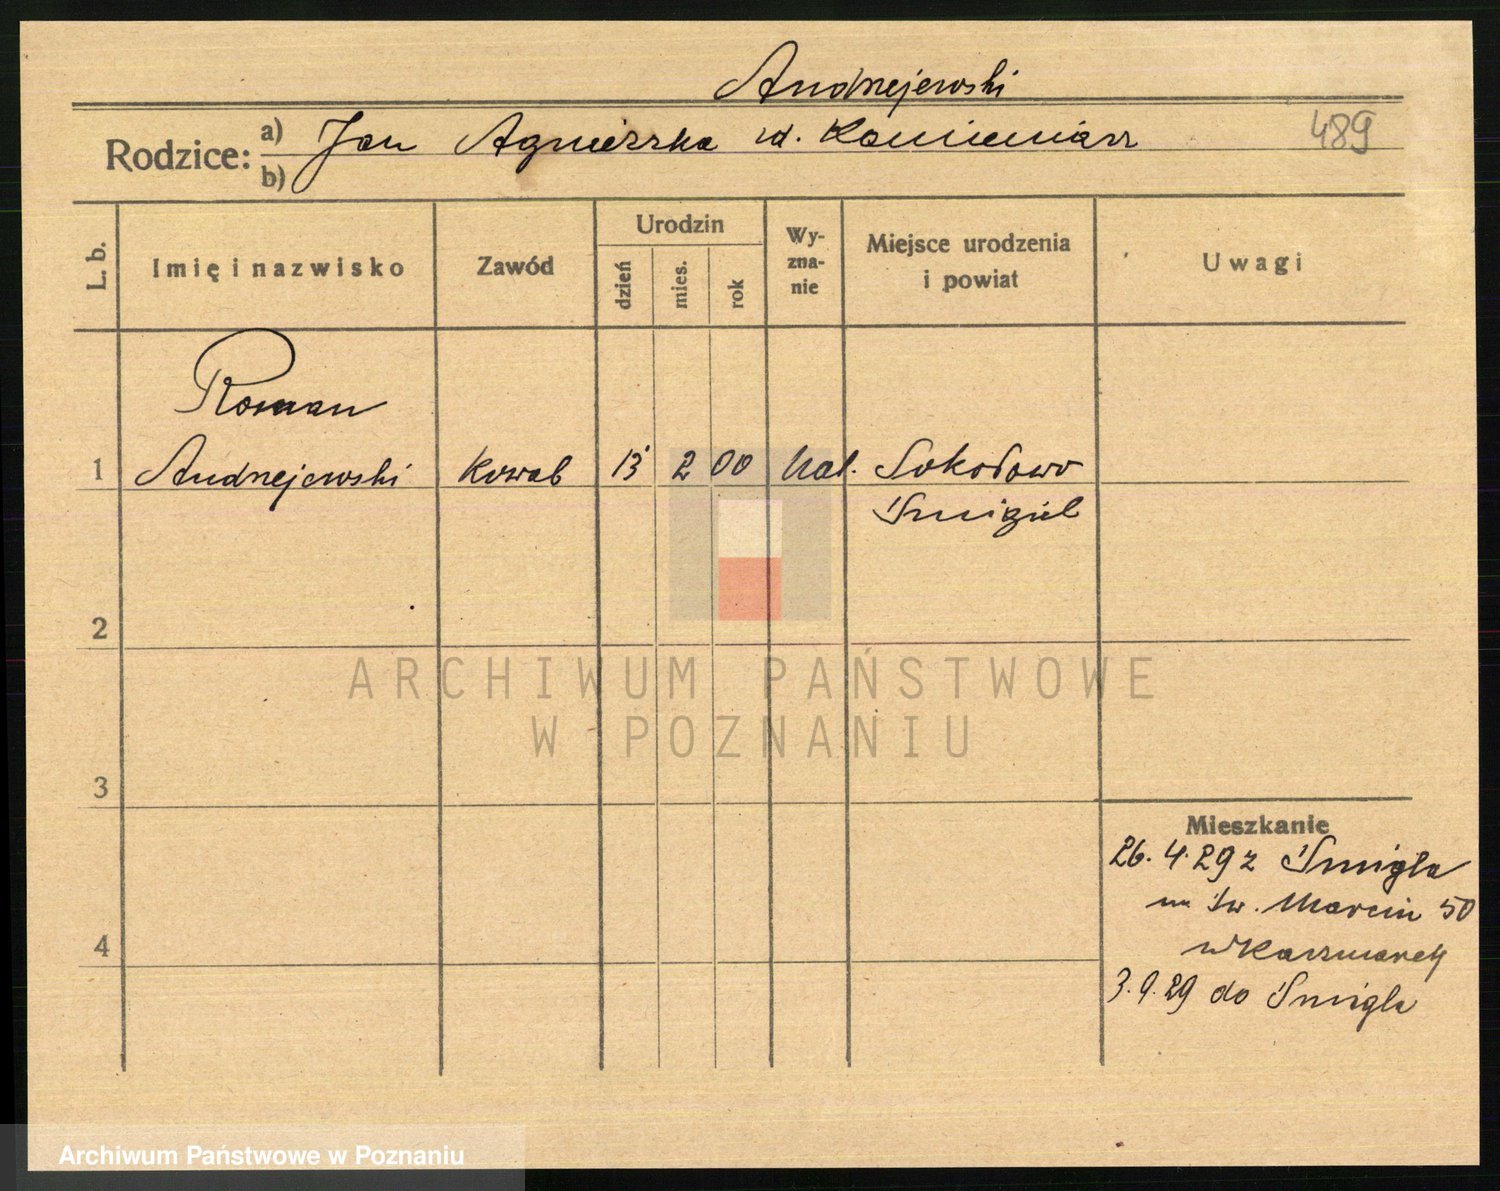 Andrzejewski
Rodzice: a) Jan Agnieszka zd. Kamieniarz
b)
489
L. b.
Imię i nazwisko
Zawód
Urodzin
dzień
mies.
rok
Wy-
zna-
nie
Miejsce urodzenia
i powiat
Uwagi
Roman
1 Andrzejewski Kowal 13 2 00 kat. Sokołowo
Śmigiel
2
3
4
Mieszkanie
26.4.29 z Śmigla
na Św. Marcin 50
3.9.29 do Śmigla
ARCHIWUM PAŃSTWOWE
W POZNANIU
Archiwum Państwowe w Poznaniu